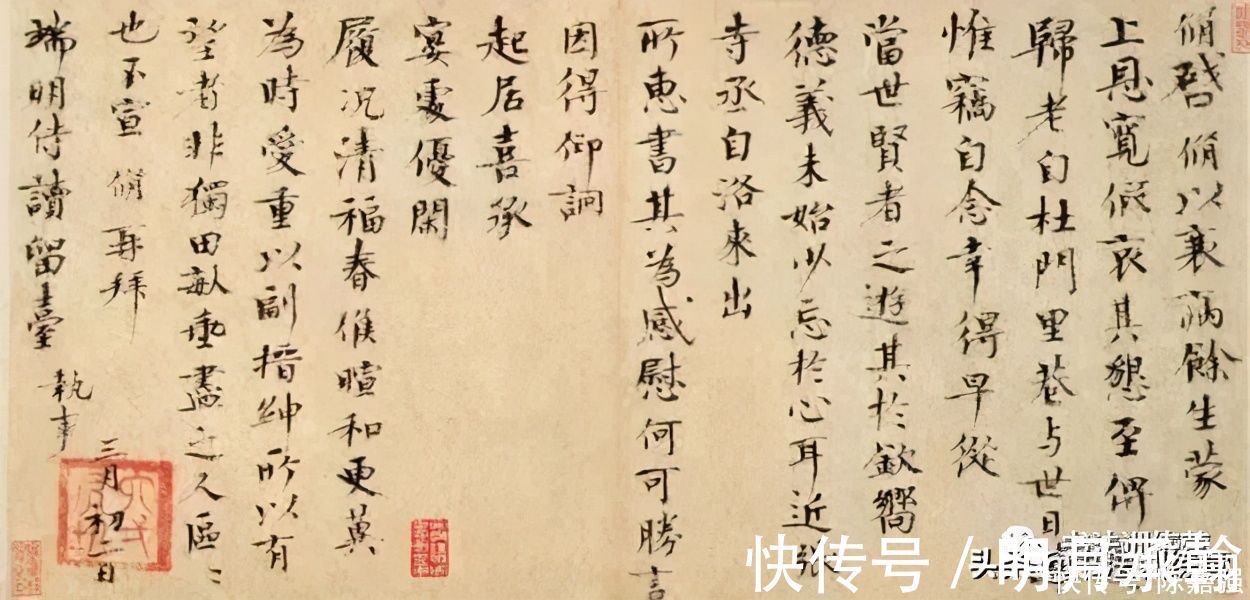 脩啓脩以衰病餘生蒙
上恩寛假哀其懇至俾
歸老自杜門里巷与世日
惟竊自念幸得早從
當世賢者之遊其於欽嚮
德義未始少忘於心耳近張
寺丞自洛來出
所惠書其為感慰何可勝言
因得仰詗
起居喜承
宴處優閑
履況清福春候暄和更冀
為時愛重以副搢紳所以有
望者非獨田畝垂盡之人區〻
也不宣脩再拜
端明侍讀留臺
執事
三月初二日
快传号/
头条
快传号